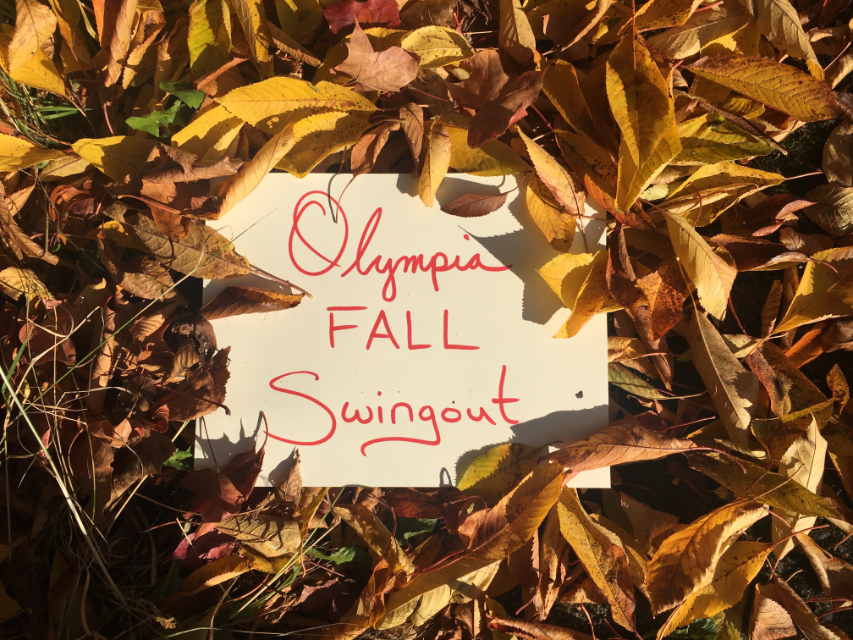 Olympia
FALL
Swingout